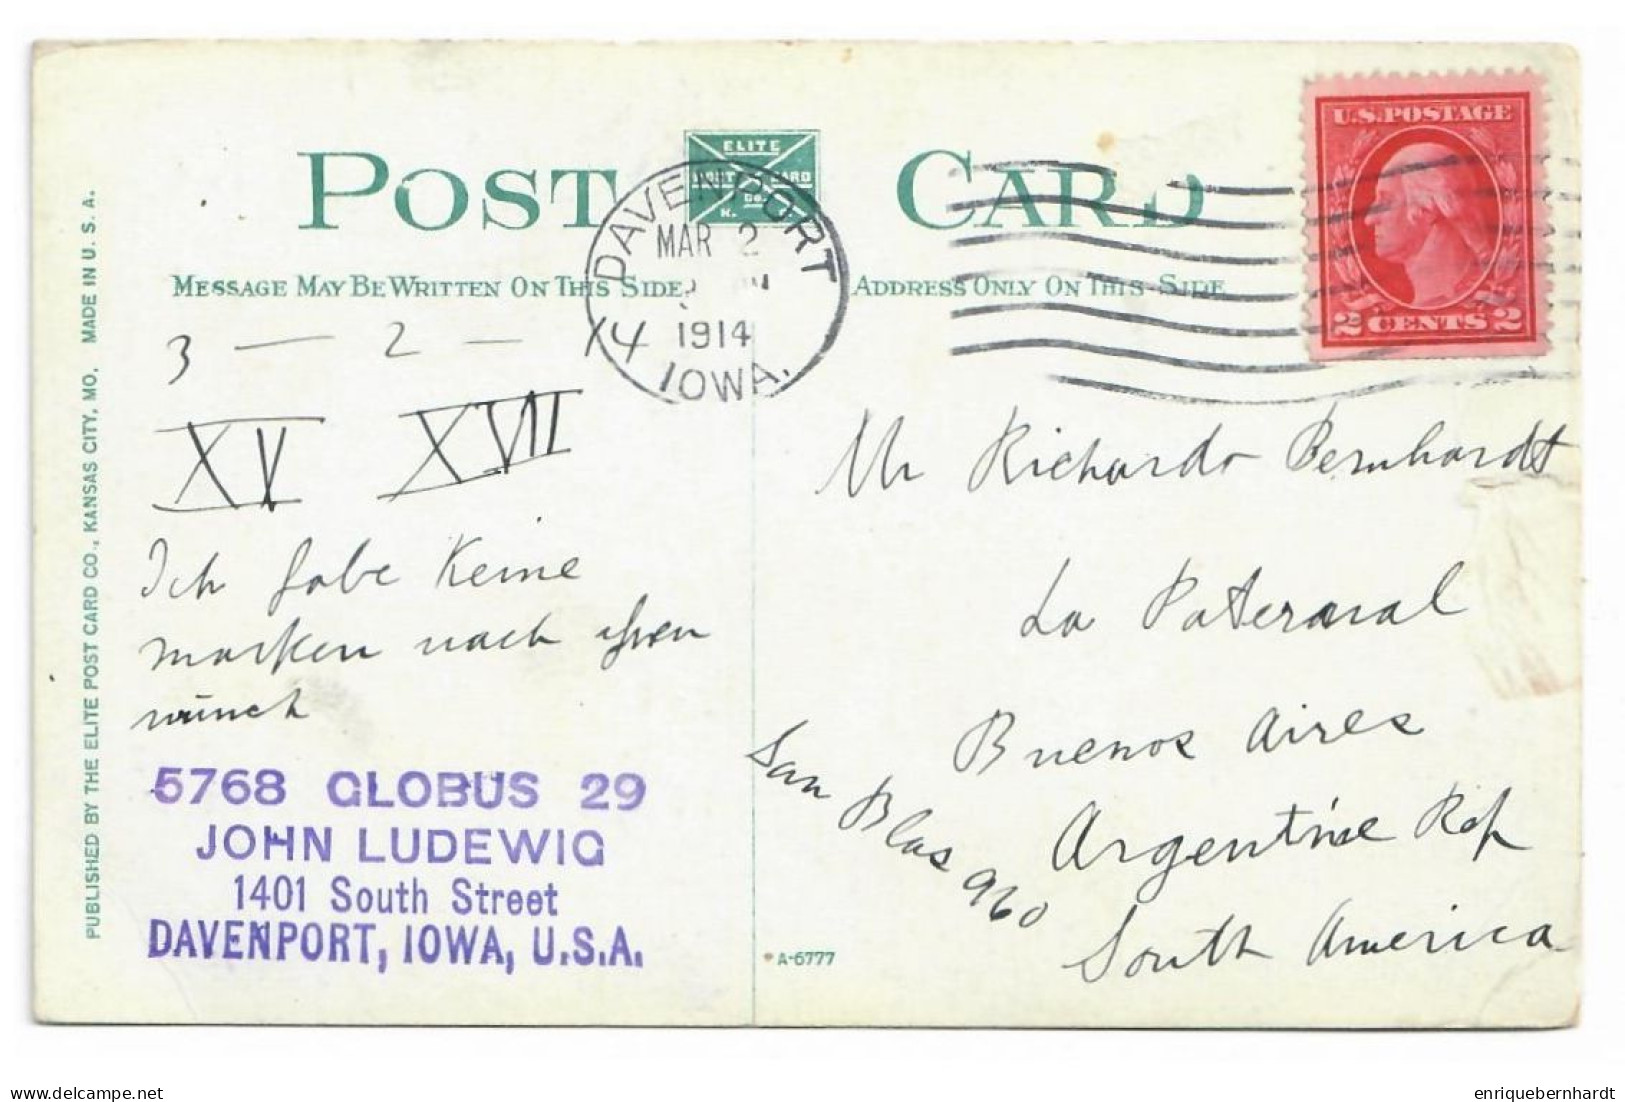 POST CARD
ELITE
POST CARD
Co.
K.
DAVENPORT
MAR 2
1914
IOWA.
U.S. POSTAGE
2 CENTS 2
MESSAGE MAY BE WRITTEN ON THIS SIDE
ADDRESS ONLY ON THIS SIDE
3 — 2 — 14
XV XVII
Ich habe Keine
marken nach ihren
wünsch
5768 GLOBUS 29
JOHN LUDEWIG
1401 South Street
DAVENPORT, IOWA, U.S.A.
Mr Richardo Bernhardt
La Paternal
Buenos Aires
San Blas 960
Argentine Rep
South America
A-6777
PUBLISHED BY THE ELITE POST CARD CO., KANSAS CITY, MO. MADE IN U. S. A.
delcampe.net
enriquebernhardt